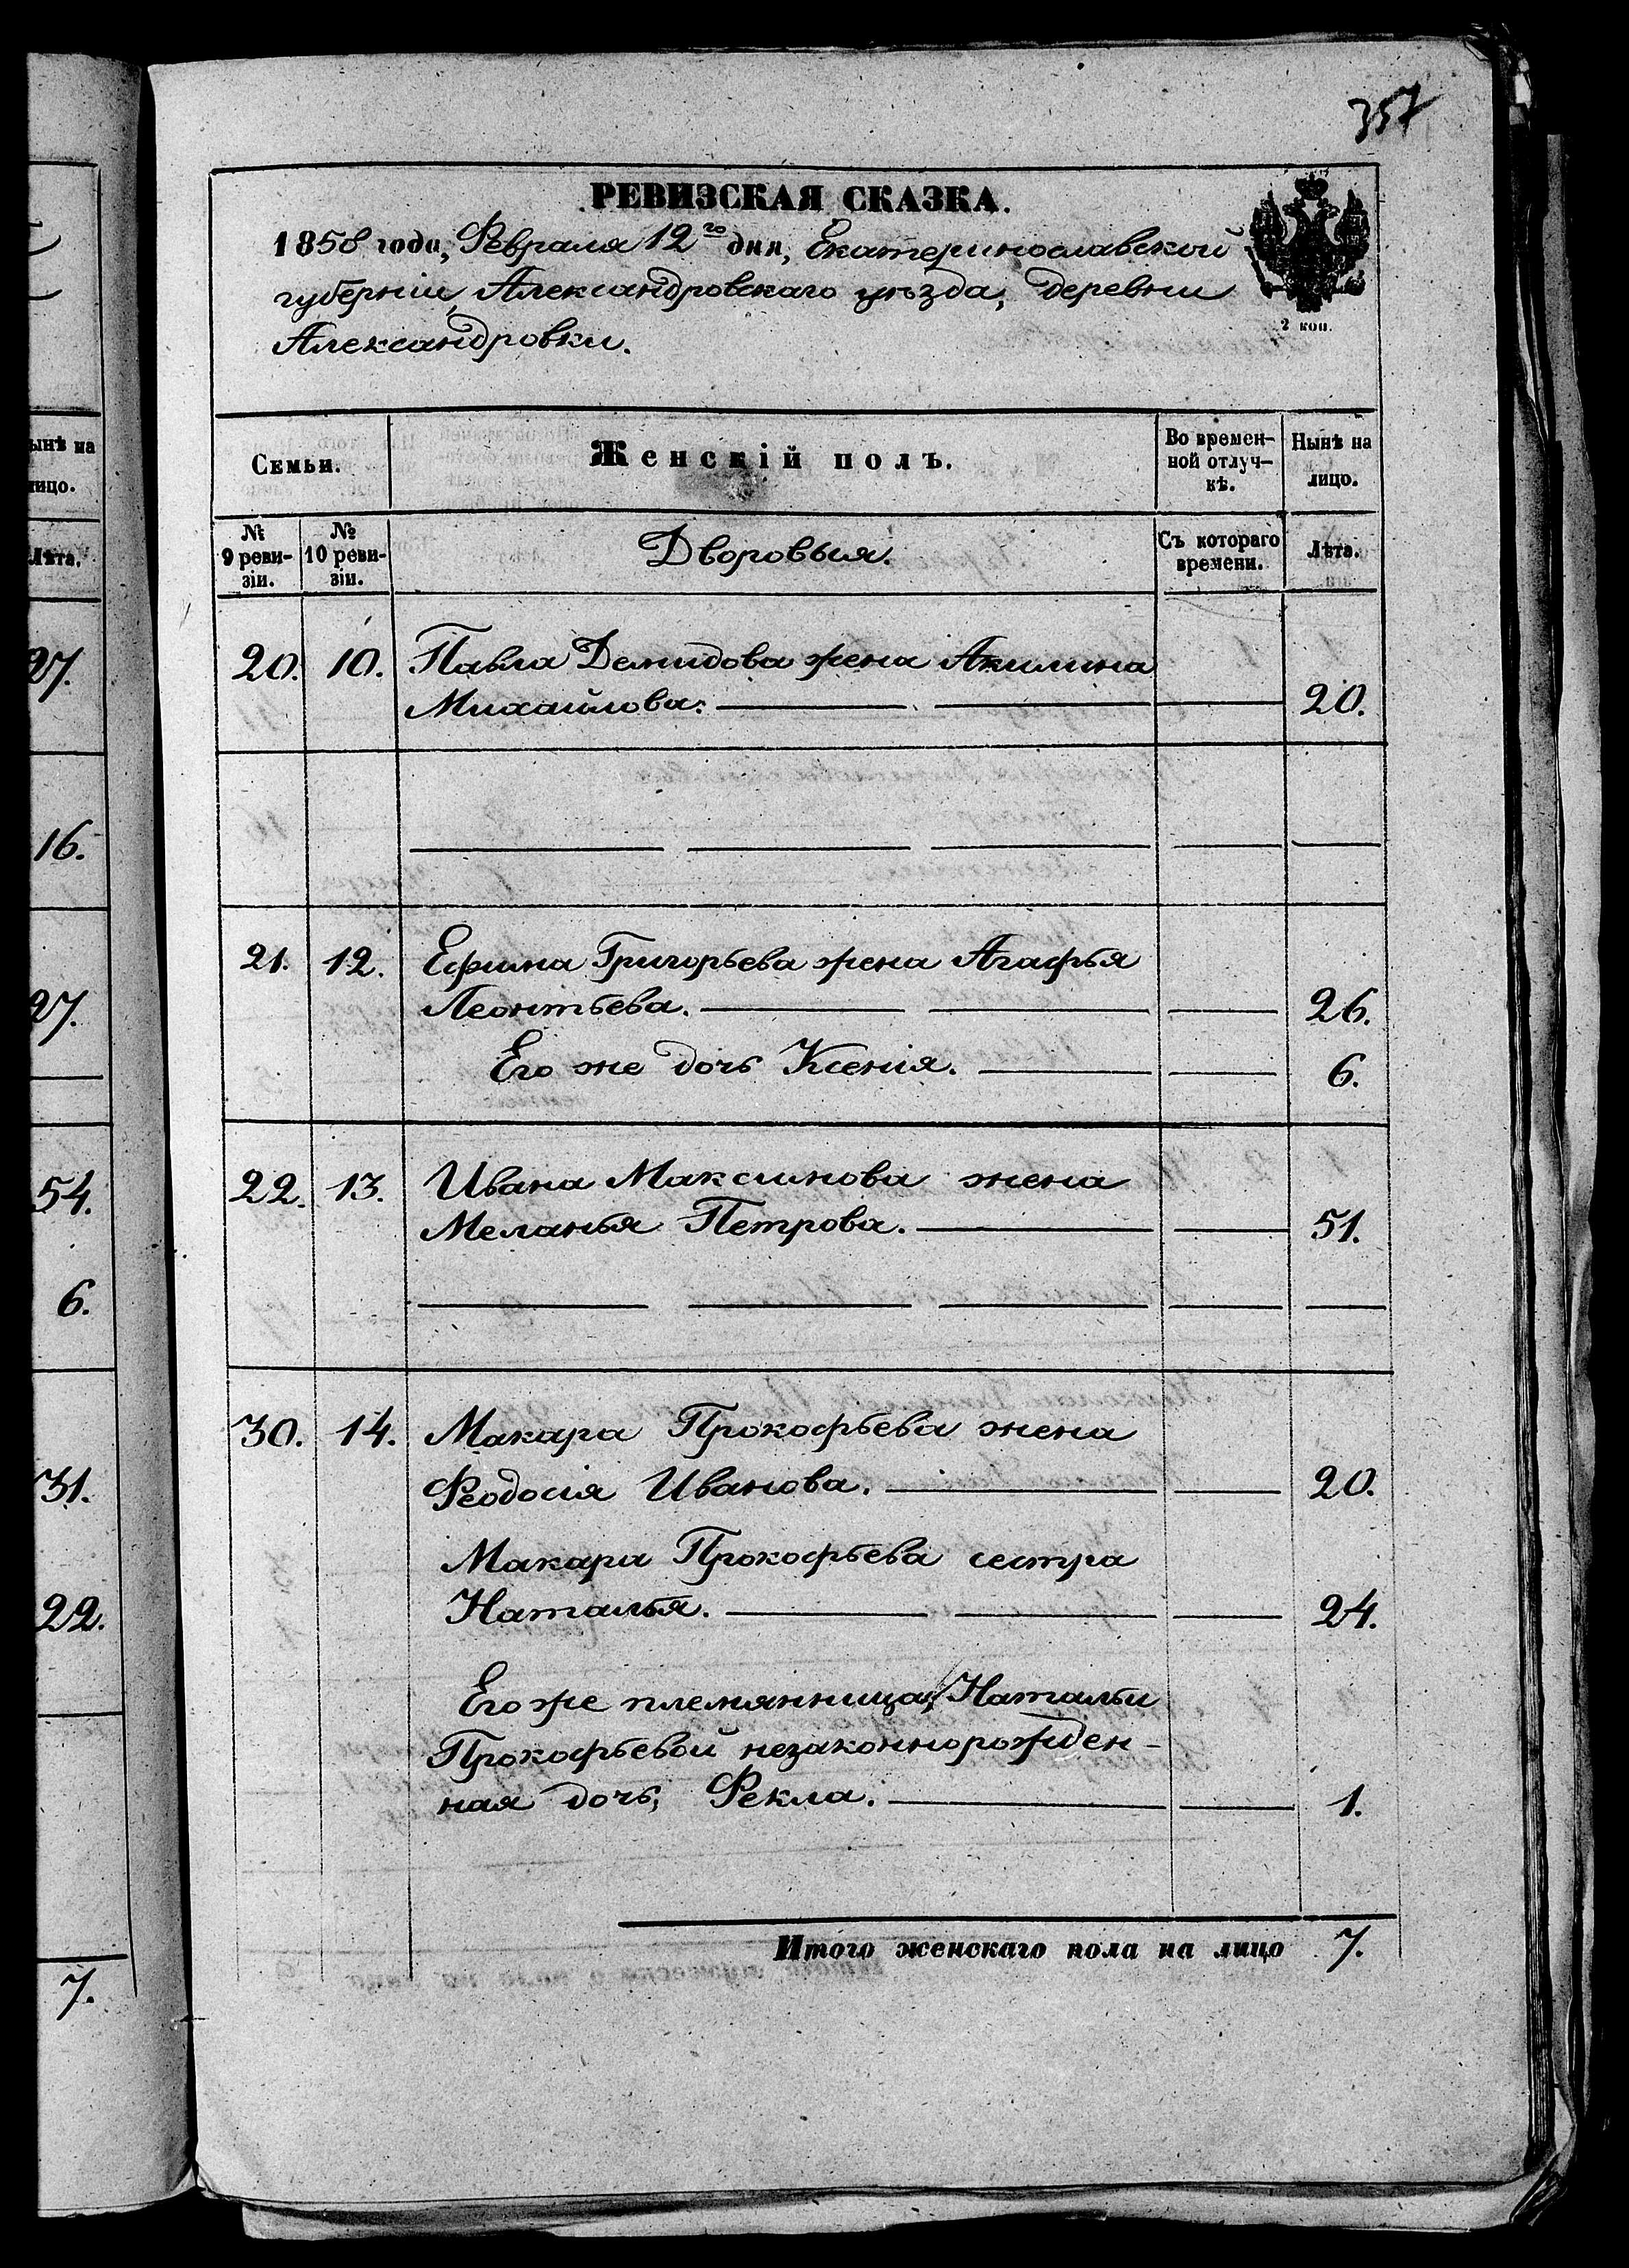 357
РЕВИЗСКАЯ СКАЗКА.
1858 года, Февраля 12го дня, Екатеринославской
губерніи, Александровскаго уѣзда, деревни
Александровки.
2 коп.
Семьи.
Женскій полъ.
Во времен-
ной отлуч-
кѣ.
Нынѣ на
лицо.
№
9 реви-
зіи.
№
10 реви-
зіи.
Дворовыя.
Съ котораго
времени.
Лѣта.
20. 10. Павла Демидова жена Акилина
Михайлова. 20.
21. 12. Ефима Григорьева жена Агафья
Леонтьева. 26.
Его же дочь Ксенія. 6.
22. 13. Ивана Максимова жена
Меланья Петрова. 51.
30. 14. Макара Прокофьева жена
Феодосія Иванова. 20.
Макара Прокофьева сестра
Наталья. 24.
Его же племянница, Натальи
Прокофьевой незаконнорожден-
ная дочь, Фекла. 1.
Итого женскаго пола на лицо 7.
ынѣ на
лицо.
Лѣта.
27.
16.
27.
54.
6.
31.
22.
7.